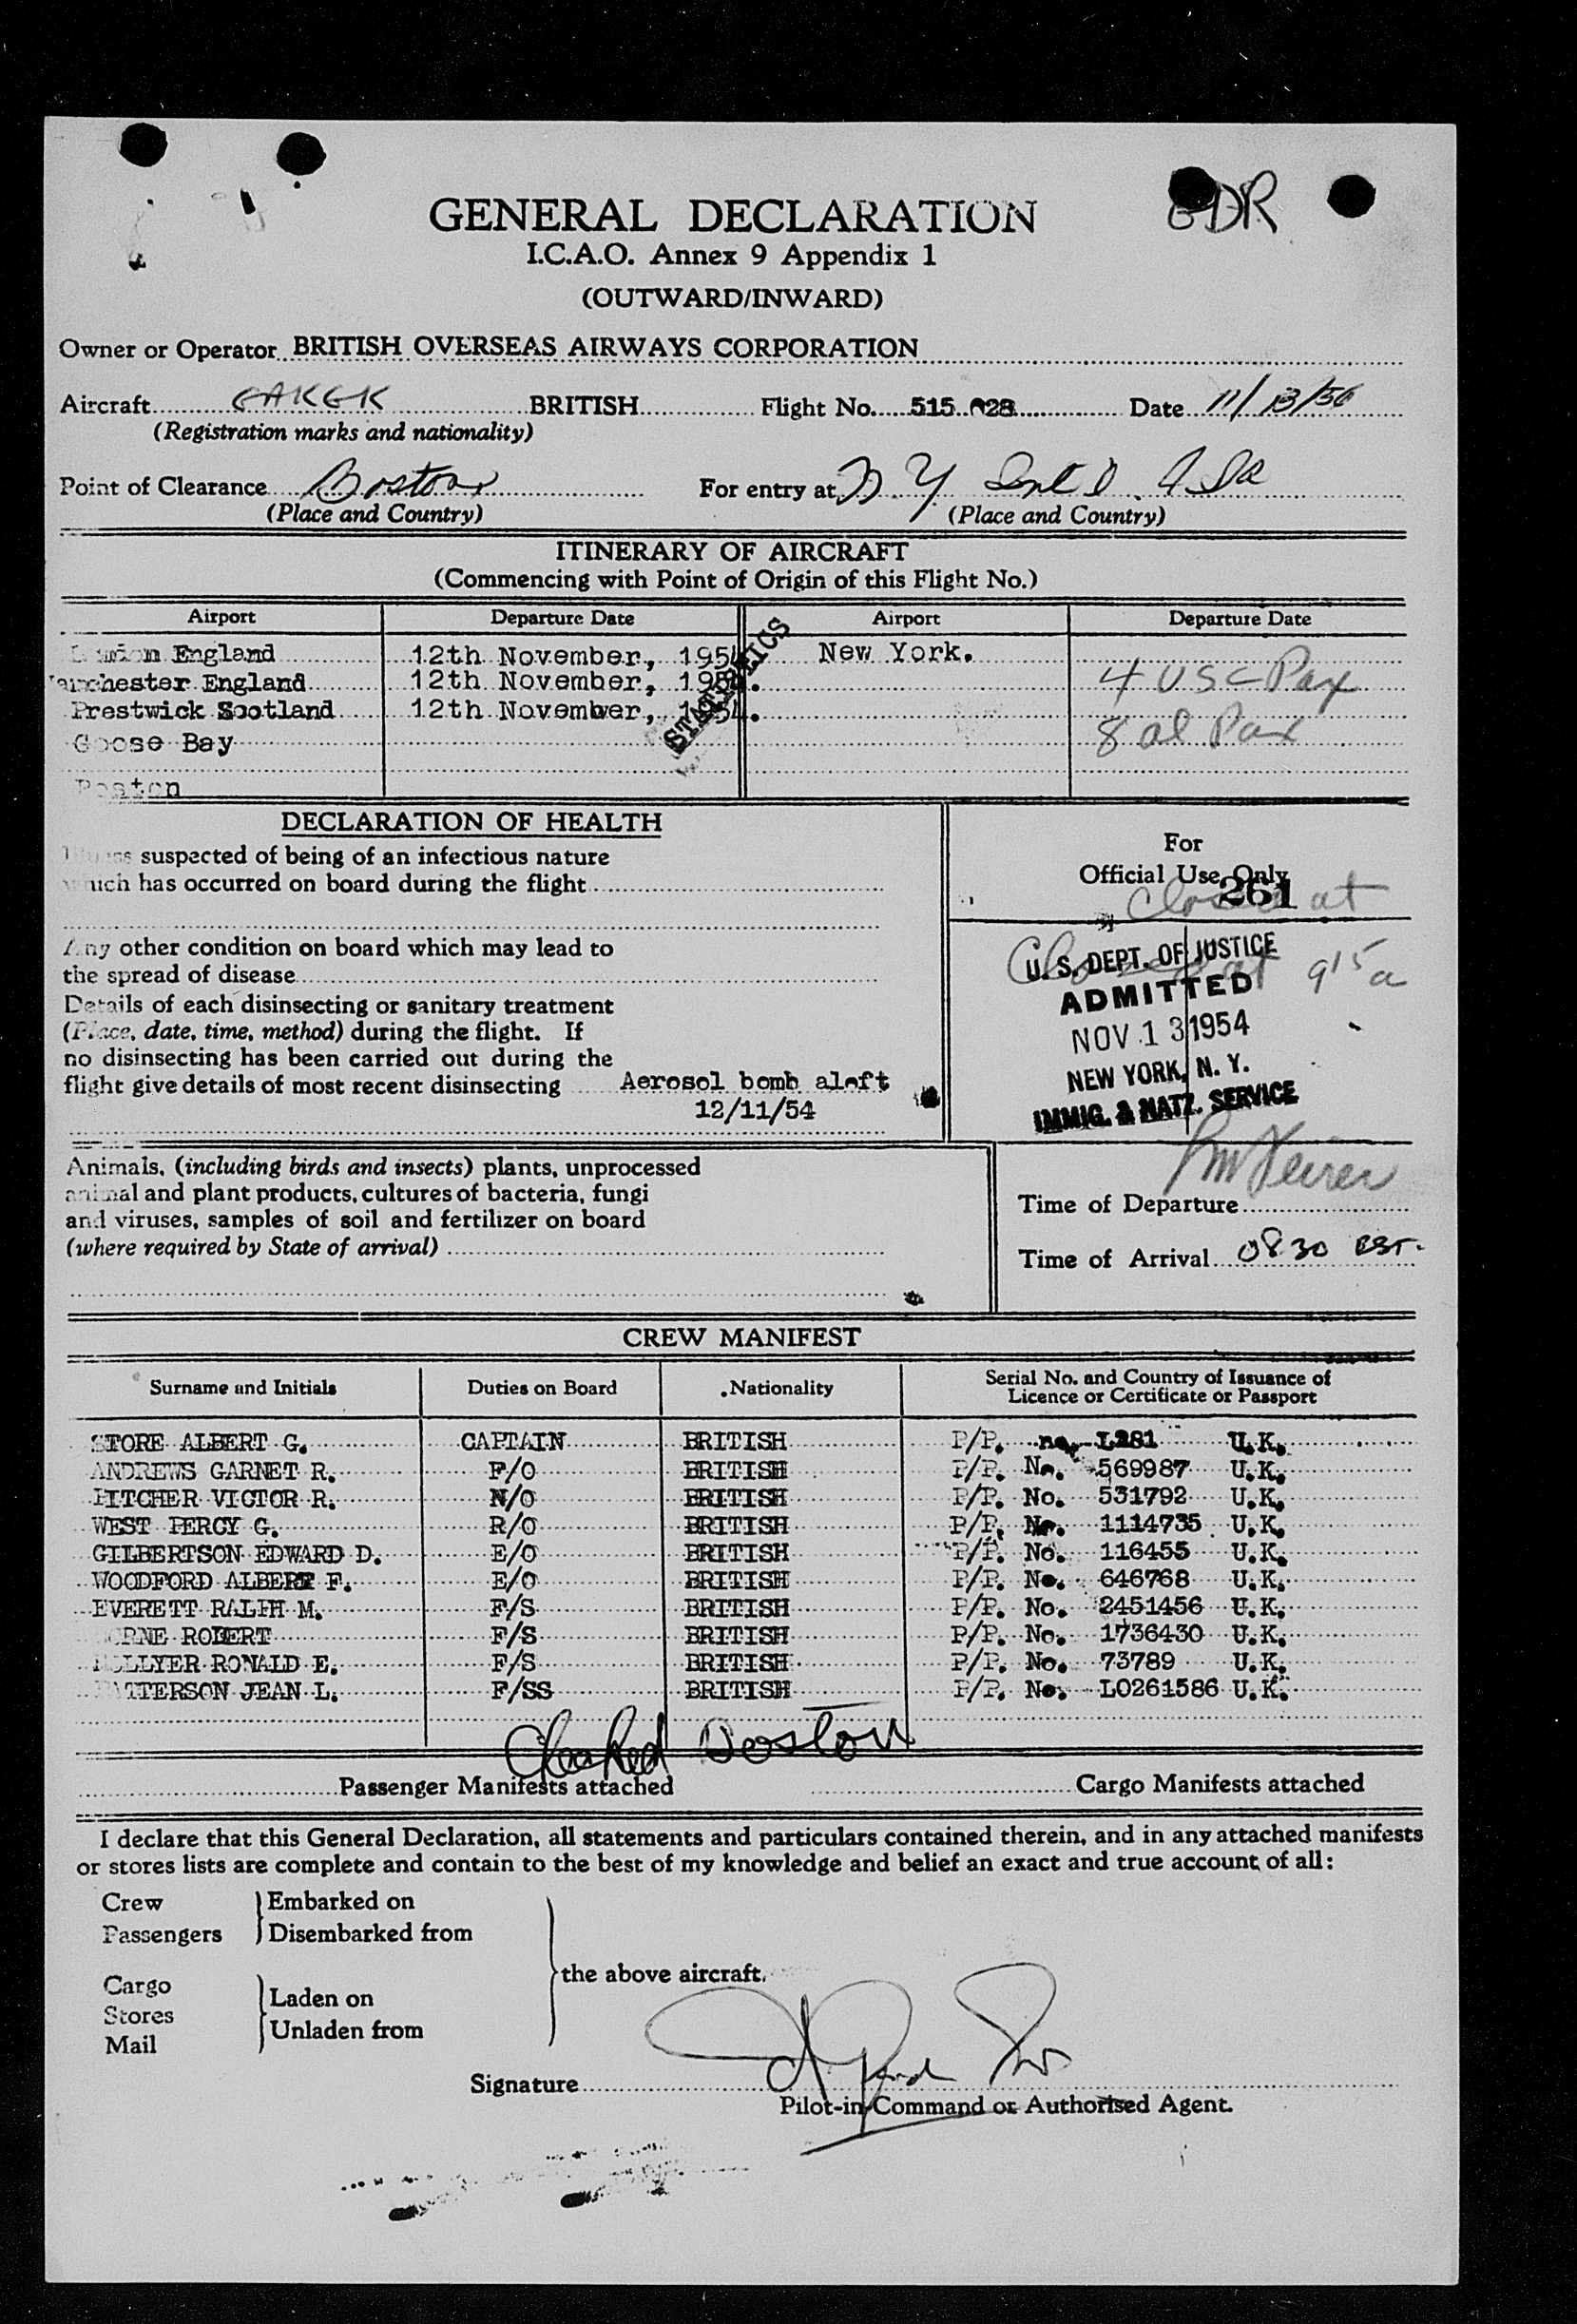 GENERAL DECLARATION
I.C.A.O. Annex 9 Appendix 1
(OUTWARD/INWARD)
Owner or Operator BRITISH OVERSEAS AIRWAYS CORPORATION
Aircraft GAKGK BRITISH Flight No. 515 028 Date 11/13/56
(Registration marks and nationality)
Point of Clearance Boston For entry at N.Y.
(Place and Country) (Place and Country)
ITINERARY OF AIRCRAFT
(Commencing with Point of Origin of this Flight No.)
Airport Departure Date Airport Departure Date
London England 12th November, 1954. New York.
STATISTICS
Manchester England 12th November, 1954. 4 USC Pax
Prestwick Scotland 12th November, 1954.
Goose Bay 8 al Pax
Boston
DECLARATION OF HEALTH
Illness suspected of being of an infectious nature
which has occurred on board during the flight
Any other condition on board which may lead to
the spread of disease
Details of each disinsecting or sanitary treatment
(Place, date, time, method) during the flight. If
no disinsecting has been carried out during the
flight give details of most recent disinsecting Aerosol bomb aloft
12/11/54
For
Official Use Only
261
at
at 915a
U. S. DEPT. OF JUSTICE
ADMITTED
NOV 13 1954
NEW YORK, N. Y.
IMMIG. & NATZ. SERVICE
Animals, (including birds and insects) plants, unprocessed
animal and plant products, cultures of bacteria, fungi
and viruses, samples of soil and fertilizer on board
(where required by State of arrival)
Time of Departure
Time of Arrival 0830 EST.
CREW MANIFEST
Surname and Initials Duties on Board Nationality Serial No. and Country of Issuance of
Licence or Certificate or Passport
STORE ALBERT G. CAPTAIN BRITISH P/P. no. L281 U.K.
ANDREWS GARNET R. F/O BRITISH P/P. No. 569987 U.K.
PITCHER VICTOR R. N/O BRITISH P/P. No. 531792 U.K.
WEST PERCY G. R/O BRITISH P/P. No. 1114735 U.K.
GILBERTSON EDWARD D. E/O BRITISH P/P. No. 116455 U.K.
WOODFORD ALBERT F. E/O BRITISH P/P. No. 646768 U.K.
EVERETT RALPH M. F/S BRITISH P/P. No. 2451456 U.K.
ROBERT F/S BRITISH P/P. No. 1736430 U.K.
RONALD E. F/S BRITISH P/P. No. 73789 U.K.
PATTERSON JEAN L. F/SS BRITISH P/P. No. L0261586 U.K.
Boston
Passenger Manifests attached Cargo Manifests attached
I declare that this General Declaration, all statements and particulars contained therein, and in any attached manifests
or stores lists are complete and contain to the best of my knowledge and belief an exact and true account of all:
Crew Embarked on
Passengers Disembarked from
the above aircraft.
Cargo
Stores Laden on
Mail Unladen from
Signature
Pilot-in-Command or Authorised Agent.